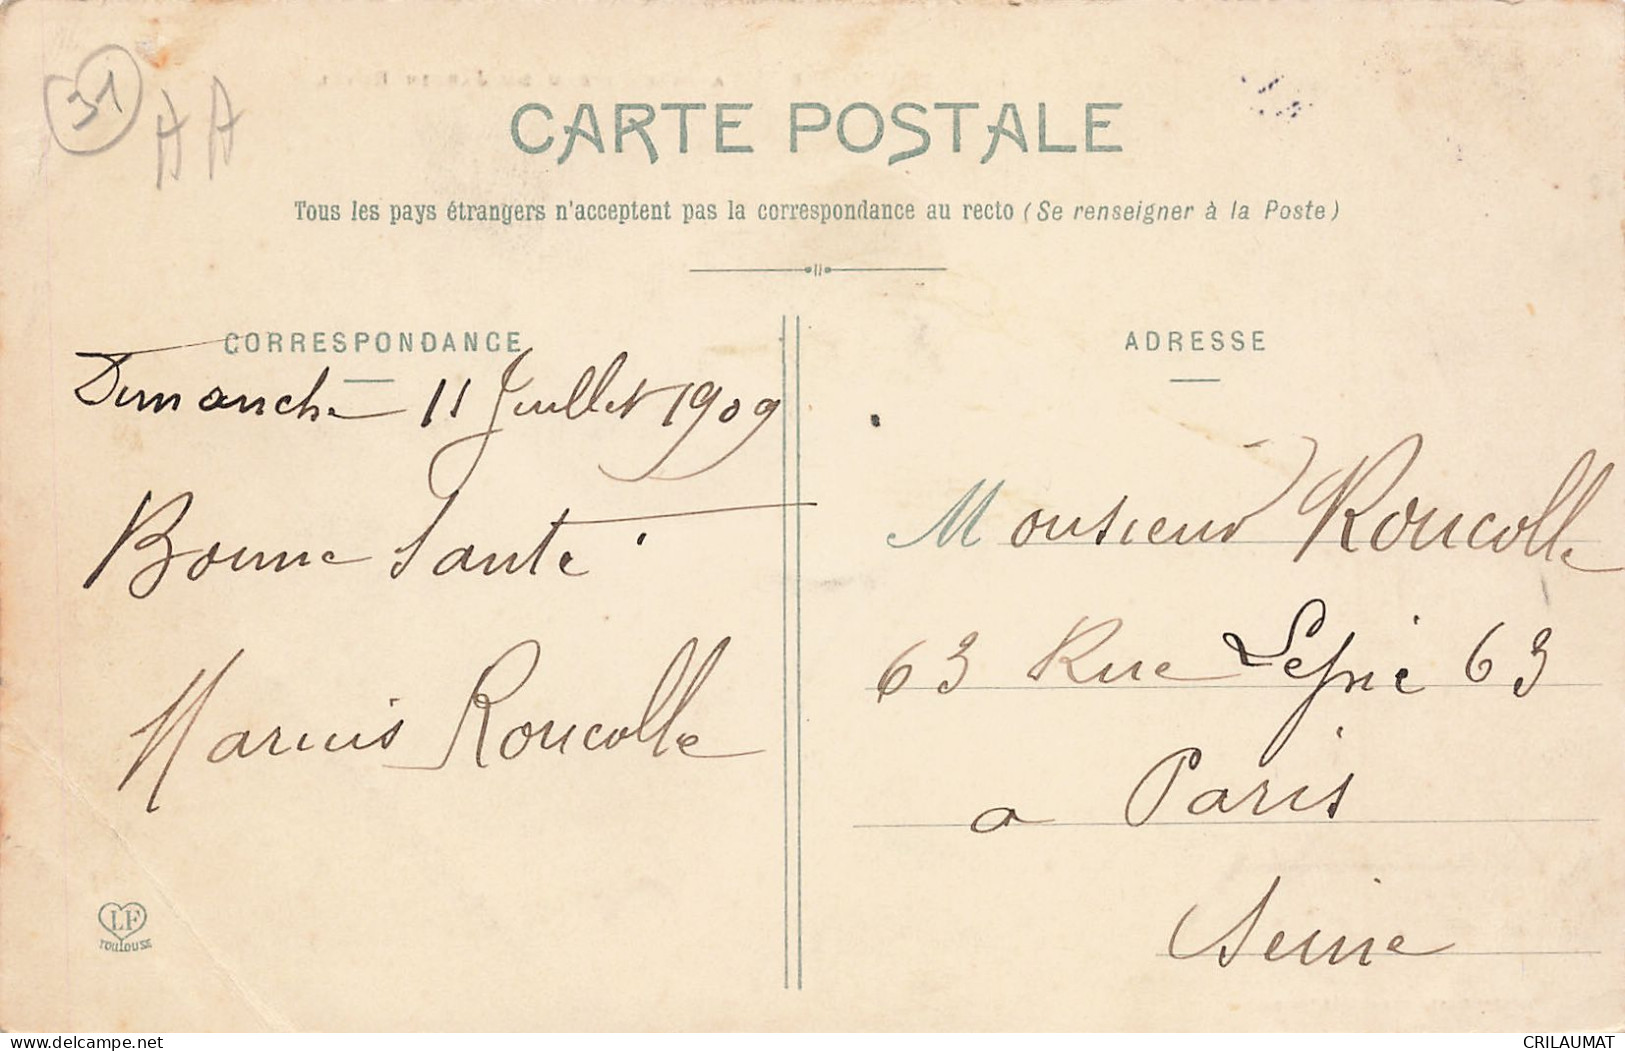 31
AA
CARTE POSTALE
Tous les pays étrangers n'acceptent pas la correspondance au recto (Se renseigner à la Poste)
CORRESPONDANCE
Dimanche 11 Juillet 1909
Bonne Santé
Marius Roucolle
LF
TOULOUSE
ADRESSE
Monsieur Roucolle
63 Rue Lepic 63
a Paris
Seine
delcampe.net
CRILAUMAT